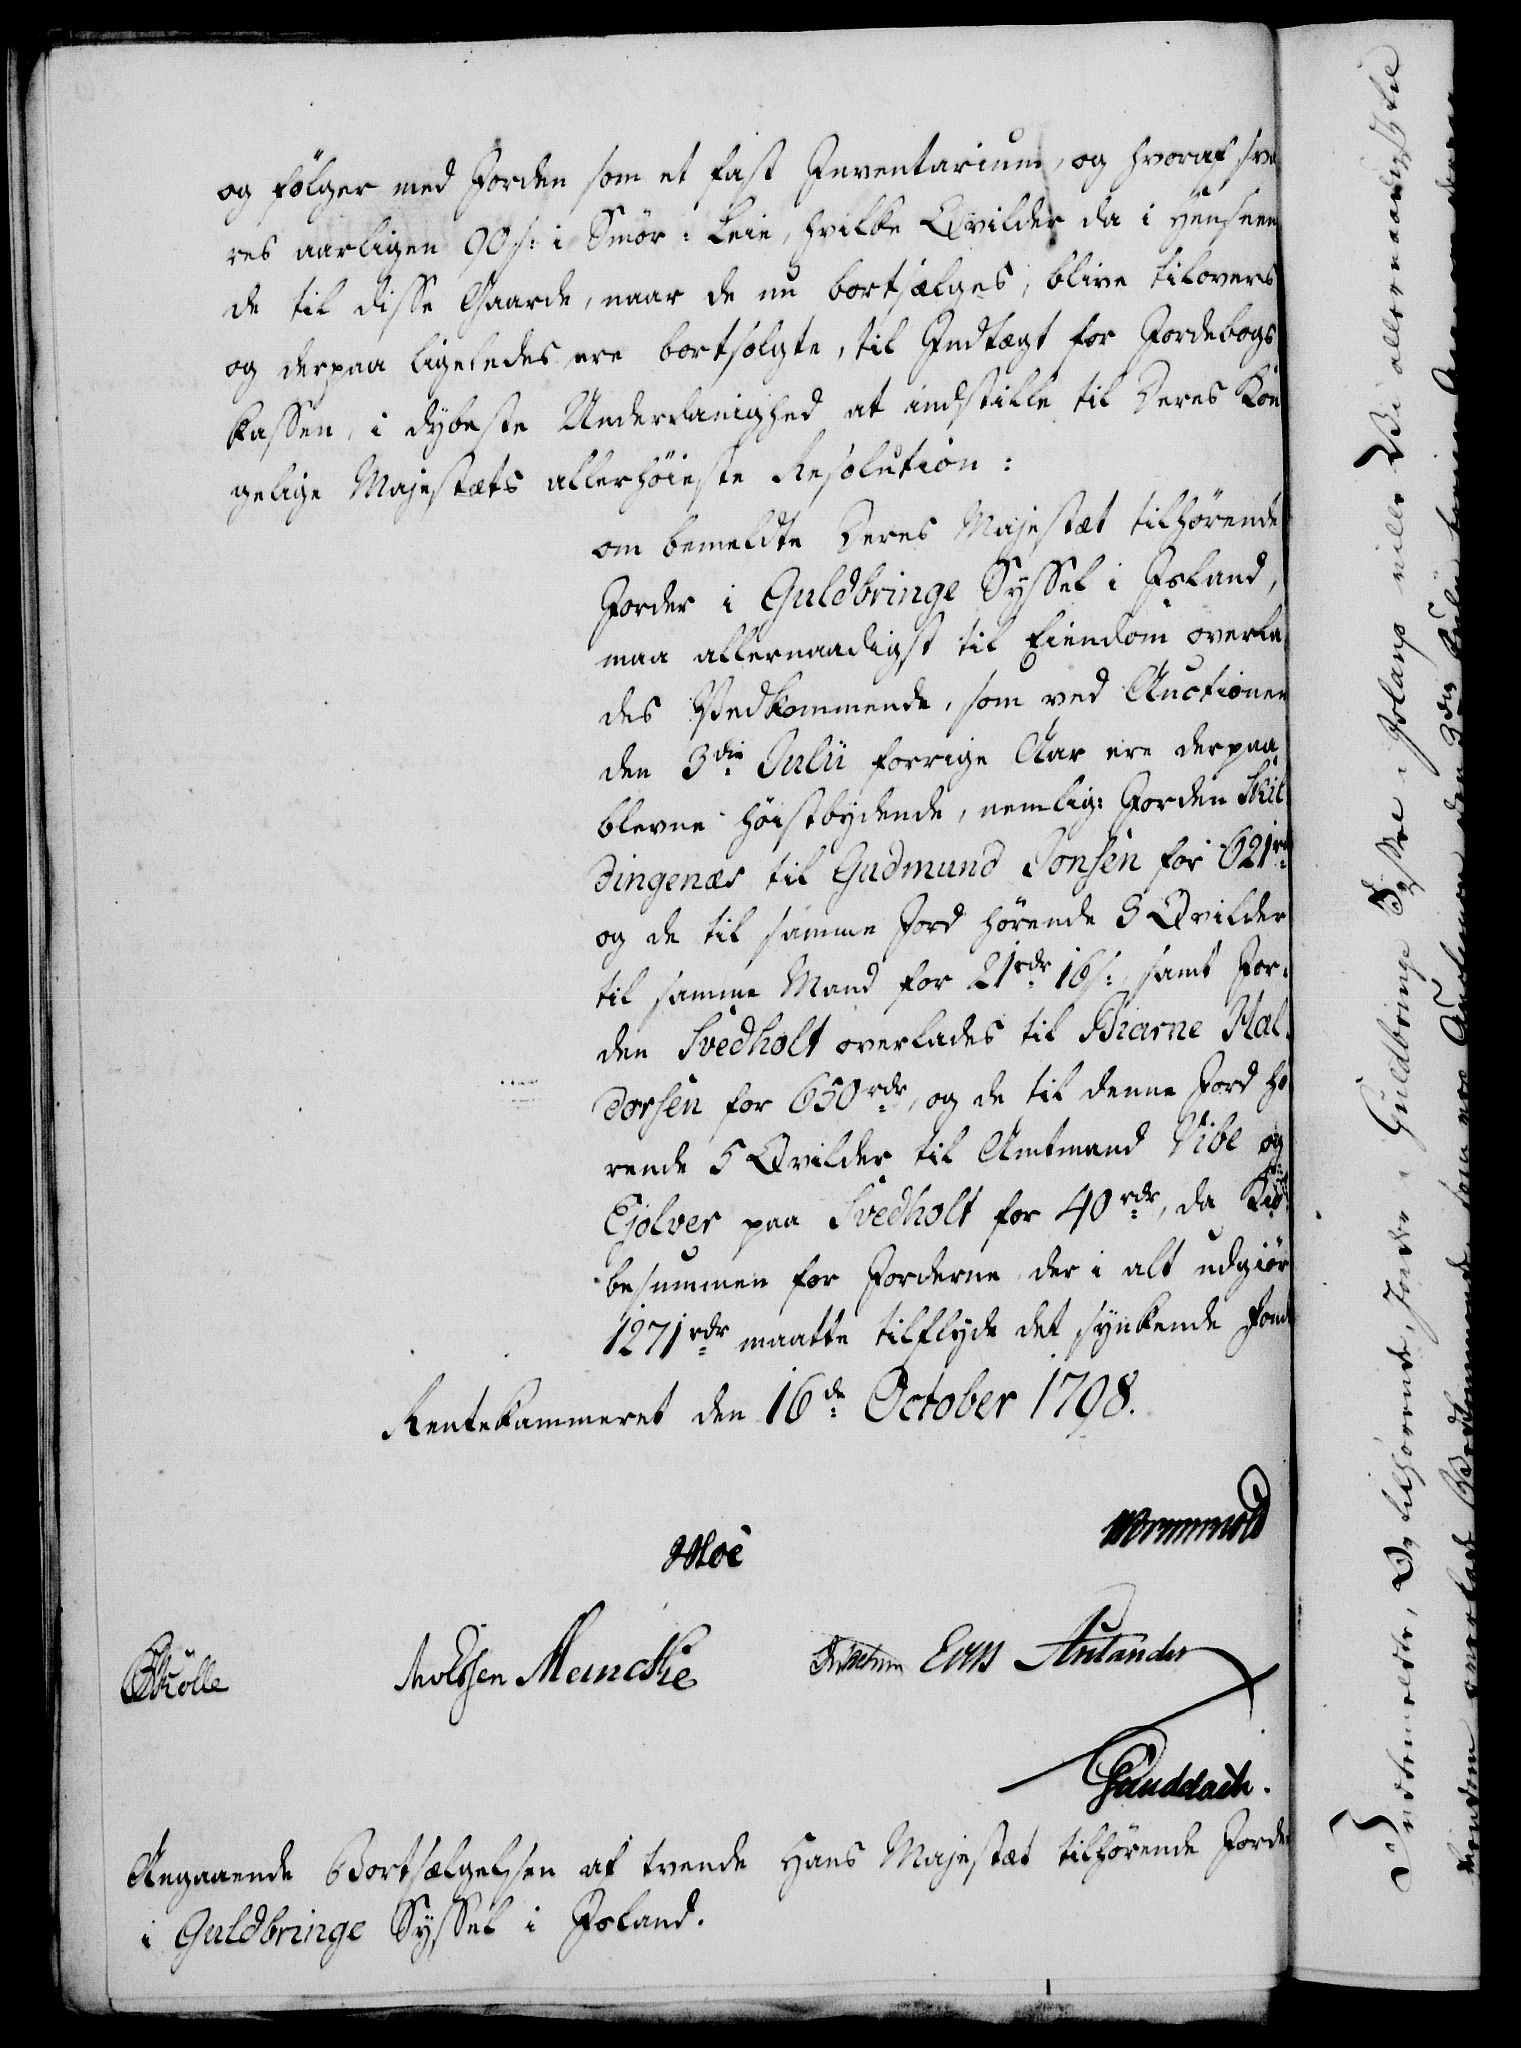 og følger med Jorden som et fast Inventarium, og hvoraf sva
res aarligen 90 s: i Smør-Leie, hvilke Qvilder da i Henseen
de til disse Gaarde, naar de nu bortsælges, blive tilovers
og derpaa ligeledes ere bortsolgte, til Indtægt for Jordebogs
kassen, i dybeste Underdanighed at indstille til Deres Kon
gelige Majestæts allerhøieste Resolution:
om bemeldte Deres Majestæt tilhørende
Jorder i Guldbringe Syssel i Island,
maa allernaadigst til Eiendom overla
des Vedkommende, som ved Auctionen
den 3die Julii forrige Aar ere derpaa
blevne høistbydende, nemlig: Jorden Skil
dingenæs til Gudmund Jonsen for 621 rd
og de til samme Jord hørende 3 Qvilder
til samme Mand for 21 rdr 16 s: samt Jor-
den Svedholt overlades til Biarne Hal-
dorsen for 650 rdr, og de til denne Jord hø
rende 5 Qvilder til Amtmand Vibe og
Ejolver paa Svedholt for 40 rdr, da Kiø
besummen for Jorderne, der i alt udgiør
1271 rdr maatte tilflyde det synkende Fond
Rentekammeret den 16de October 1798.
Moe Wormskiold
Skölle Knudsen Meincke Evers Aulander
Angaaende Bortsælgelsen af tvende Hans Majestæt tilhørende Jorder
i Guldbringe Syssel i Island.
Indbemeldte, Os tilhørende, Jorder i Guldbringe Syssel i Island ville Vi allernaadigst til
Eiendom overlade Vedkommende, som ved Auctionen den 3die Julii